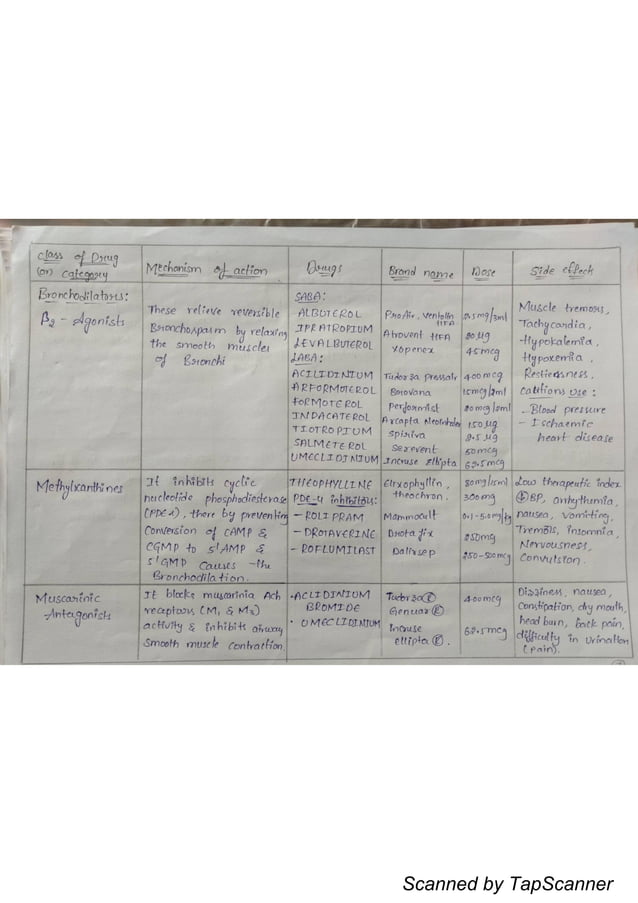 class of Drug (or) category
Mechanism of action
Drugs
Brand name
Dose
Side effect
Bronchodilators:
β2 - Agonists
These relieve reversible
Bronchospasm by relaxing
the smooth muscles
of Bronchi
SABA:
ALBUTEROL
IPRATROPIUM
LEVALBUTEROL
LABA:
ACILIDINIUM
ARFORMOTEROL
FORMOTEROL
INDACATEROL
TIOTROPIUM
SALMETEROL
UMECLIDINIUM
ProAir, Ventolin HFA
Atrovent HFA
Xopenex
Tudorza pressair
Brovana
Performist
Arcapta Neoinhaler
Spiriva
Serevent
Incruse Ellipta
2.5mg/3ml
20µg
45mcg
400mcg
15mcg/2ml
20mcg/2ml
150µg
2.5µg
50mcg
62.5mcg
Muscle tremors,
Tachycardia,
-Hypokalemia,
Hypoxemia,
Restlessness.
Cautions Use:
- Blood pressure
- Ischaemic
heart disease
Methylxanthines
It inhibits cyclic
nucleotide phosphodiesterase
(PDE4), there by preventing
Conversion of CAMP &
CGMP to 5'AMP &
5'GMP Causes the
Bronchodilation.
THEOPHYLLINE
PDE-4 inhibitors:
- ROLIPRAM
- DROTAVERINE
- ROFLUMILAST
Elixophyllin,
theochron.
Mammocult
Drotafix
Dalirsep
80mg/15ml
300mg
0.1-5.0mg/kg
250mg
250-500mcg
Low therapeutic index
BP, arrhythmia,
nausea, vomiting,
Tremors, insomnia,
Nervousness,
Convulsion.
Muscarinic
-Antagonists
It blocks muscarinia Ach
receptors (M1 & M3)
activity & inhibits airway
Smooth muscle contraction.
• ACLIDINIUM
BROMIDE
• UMECLIDINIUM
Tudorza ®
Genuair ®
incruse
ellipta ®.
400mcg
62.5mcg
Dizziness, nausea,
Constipation, dry mouth,
head burn, back pain,
difficulty in Urination
(pain).
Scanned by TapScanner